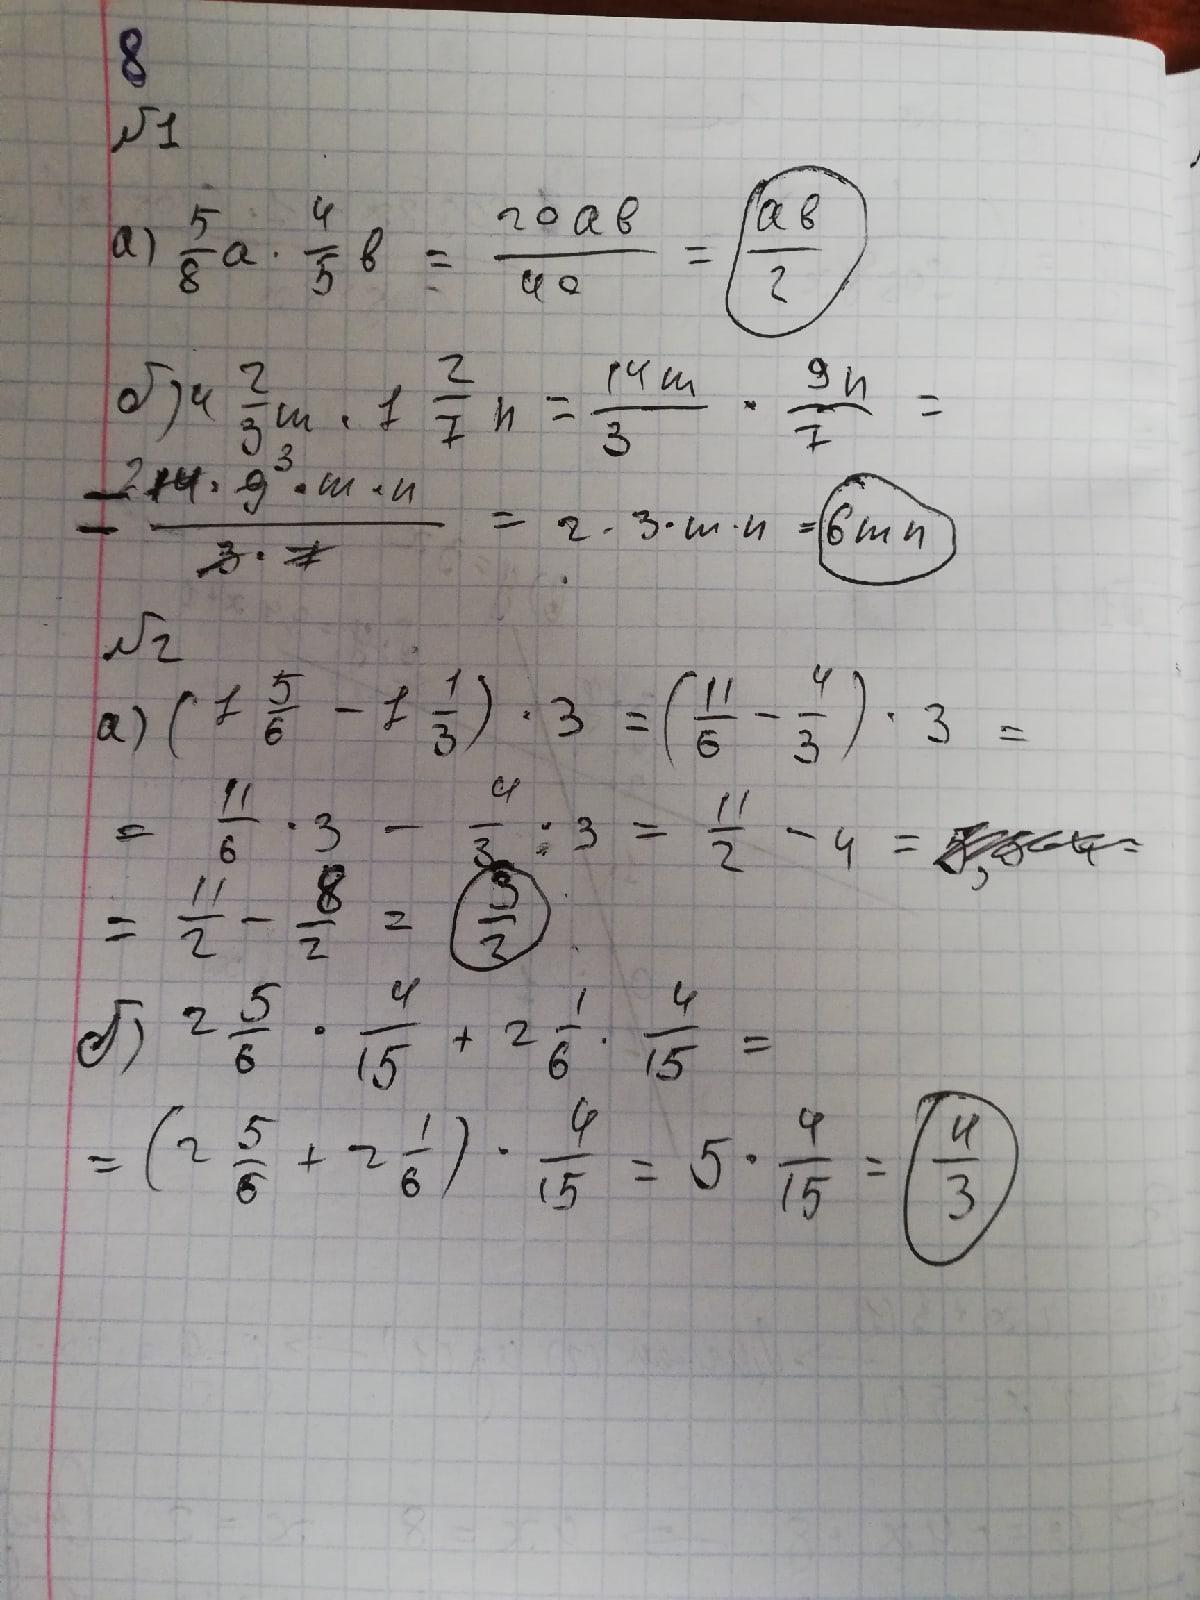 8
№1
а) 5/8 a · 4/5 b = 20ab/40 = ab/2
б) 4 2/3 m · 1 2/7 n = 14m/3 · 9n/7 =
= 2 14 · 9 3 · m · n / 3 · 7 = 2 · 3 · m · n = 6mn
№2
а) (1 5/6 - 1 1/3) · 3 = (11/6 - 4/3) · 3 =
= 11/6 · 3 - 4/3 · 3 = 11/2 - 4 =
= 11/2 - 8/2 = 3/2
б) 2 5/6 · 4/15 + 2 1/6 · 4/15 =
= (2 5/6 + 2 1/6) · 4/15 = 5 · 4/15 = 4/3